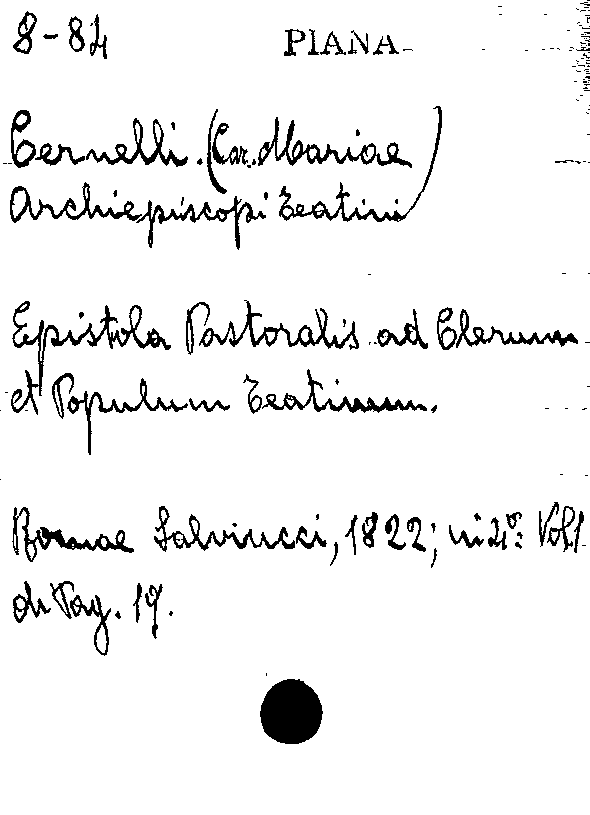 8-84 PIANA
Cernelli. (Car. Mariae)
Archiepiscopi Teatini
Epistola Pastoralis ad Clerum
et Populum Teatinum.
Romae Salviucci, 1822; in 4°: Vol. 1
di Pag. 19.